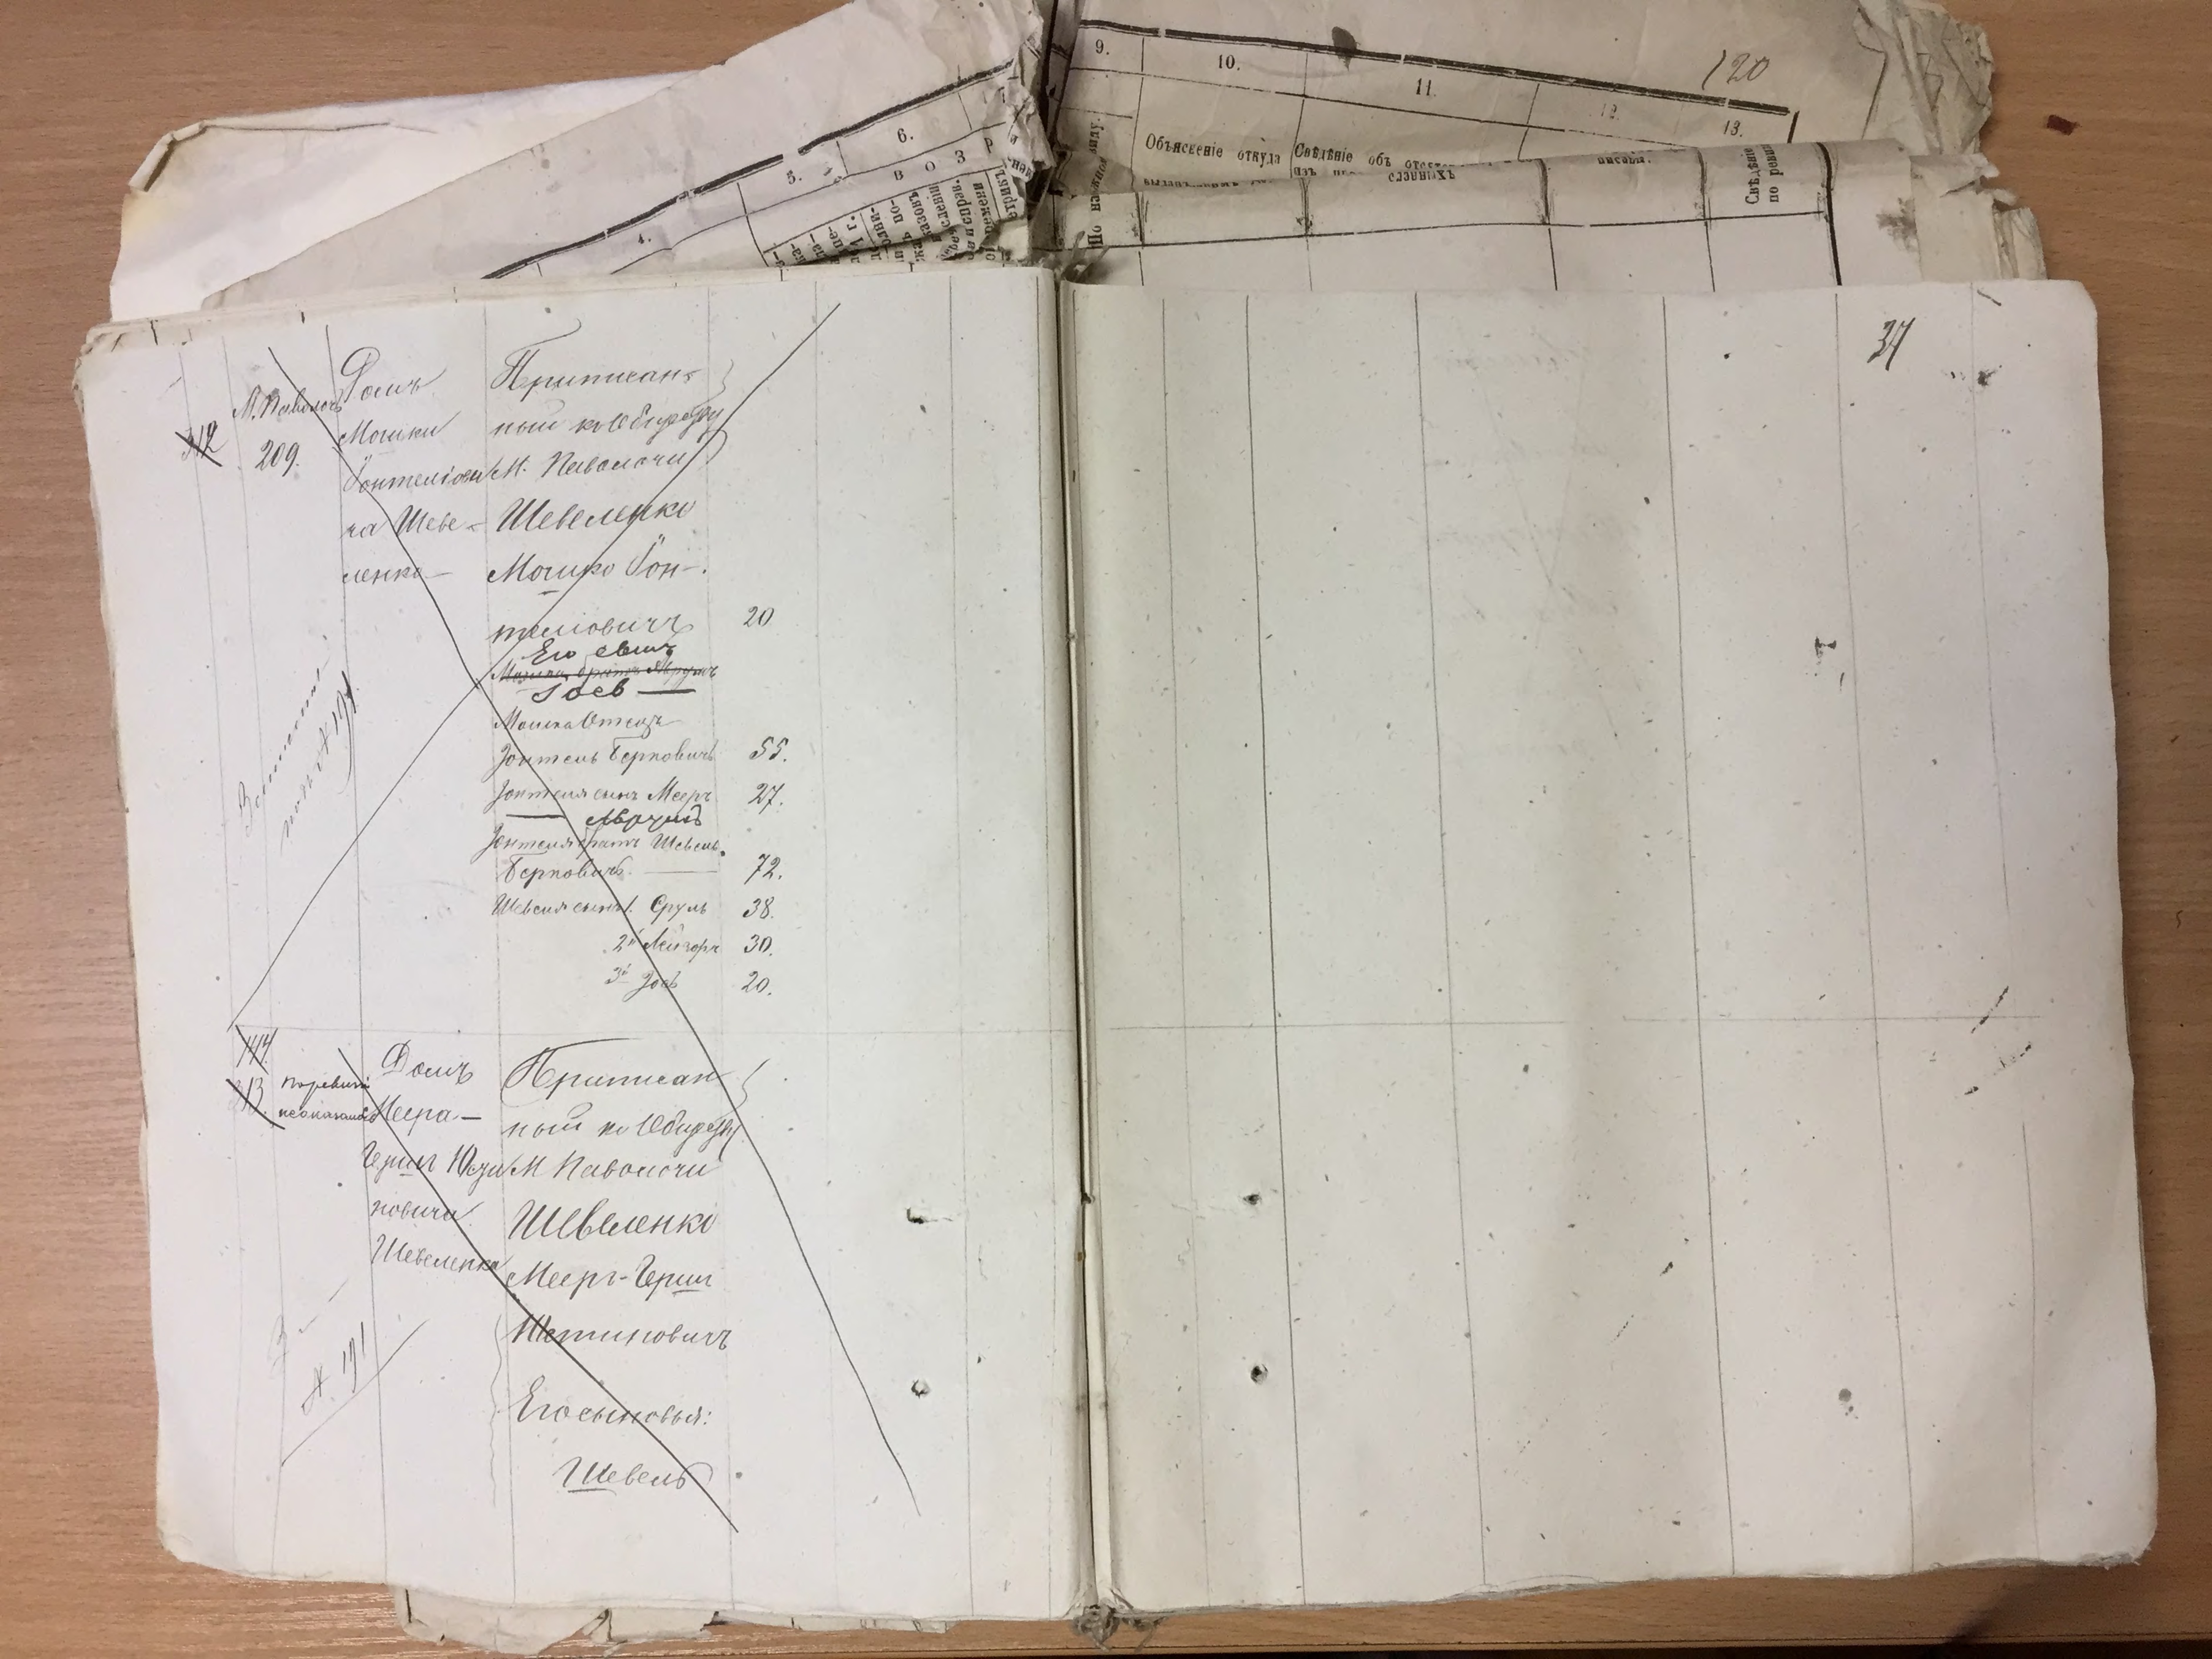 120
9.
10.
11.
12.
13.
4.
5.
6.
7
В О З Р
По наружному виду.
Объясненіе откуда
Свѣдѣніе объ
Свѣдѣніе
по ревиз
34
312
М. Паволочь
209.
Домъ
Мошки
Іонтеліови
ча Шеве-
ленко
Приписан-
ный къ Обществу
М. Паволочи
Шевеленко
Мошко Іон-
теліовичъ 20
Его сынъ
Мошки братъ Аврумъ
Іосъ
Мошка Отецъ
Іонтель Берковичъ 55.
Іонтеля сынъ Мееръ 27.
Аврумъ
Іонтеля братъ Шевель
Берковичъ 72.
Шевеля сынъ 1. Сруль 38.
2й Лейзоръ 30.
3й Іось 20.
Записанъ
подъ № 191
144
313.
По ревизіи
не оказался
Домъ
Меера-
Герша
новича
Шевеленка
Приписан-
ный къ Обществу
М Паволочи
Шевеленко
Мееръ-Гершъ
Его сыновья:
Шевель
№ 191